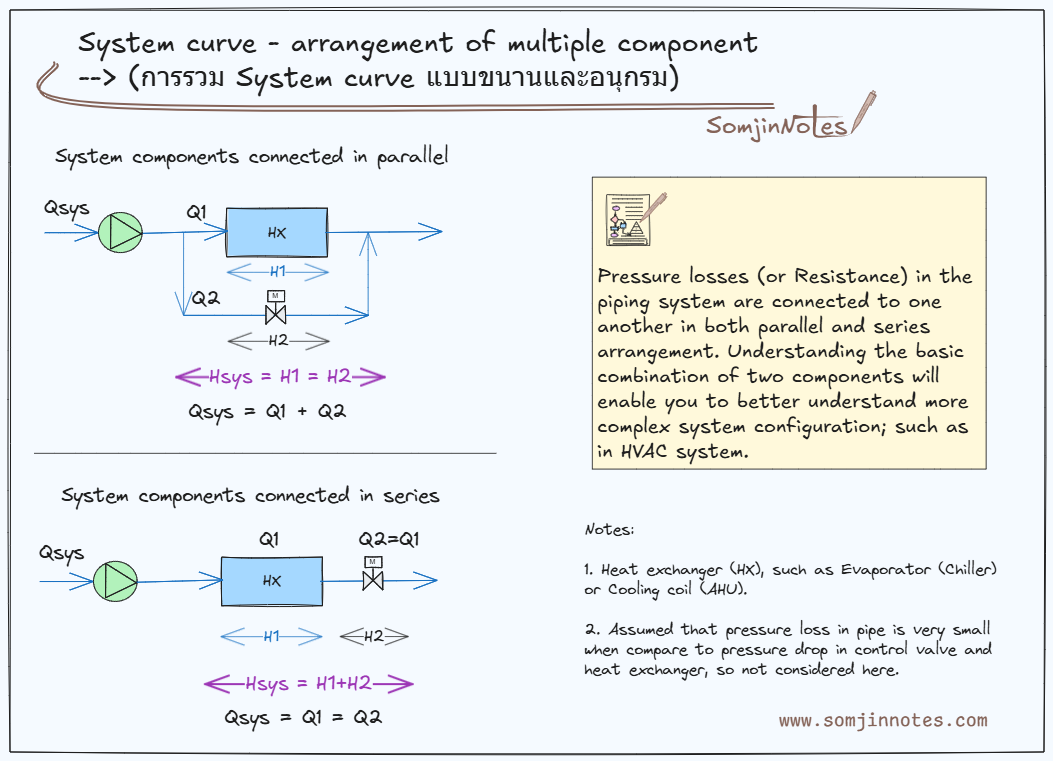 System curve - arrangement of multiple component
--> (การรวม System curve แบบขนานและอนุกรม)
SomjinNotes
System components connected in parallel
Qsys
Q1
HX
H1
Q2
M
H2
Hsys = H1 = H2
Qsys = Q1 + Q2
Pressure losses (or Resistance) in the
piping system are connected to one
another in both parallel and series
arrangement. Understanding the basic
combination of two components will
enable you to better understand more
complex system configuration; such as
in HVAC system.
System components connected in series
Qsys
Q1
Q2=Q1
HX
M
H1
H2
Hsys = H1+H2
Qsys = Q1 = Q2
Notes:
1. Heat exchanger (HX), such as Evaporator (Chiller)
or Cooling coil (AHU).
2. Assumed that pressure loss in pipe is very small
when compare to pressure drop in control valve and
heat exchanger, so not considered here.
www.somjinnotes.com